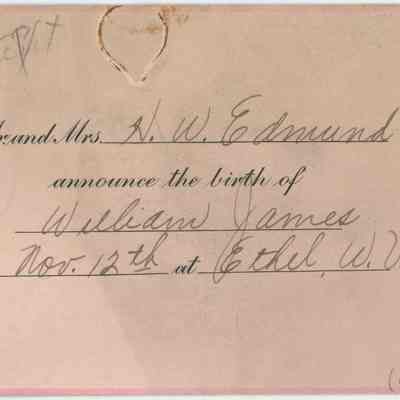 and Mrs. H. W. Edmund
announce the birth of
William James
Nov. 12th at Ethel, W. V